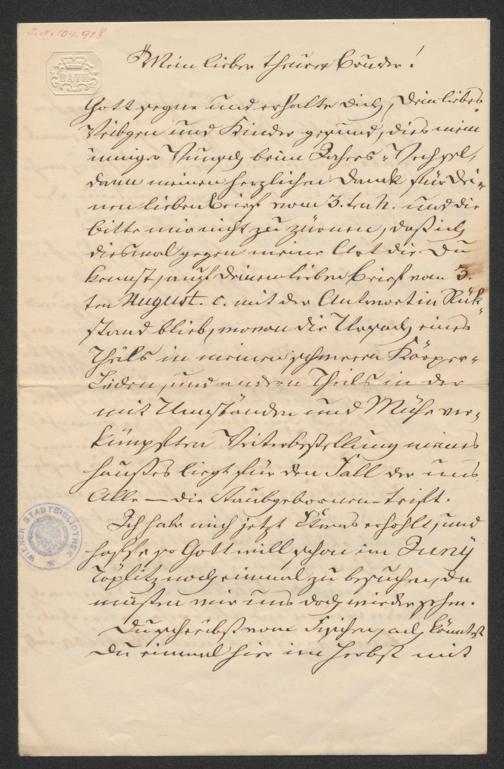 I.N. 104.918
BATH
Mein lieber theurer Bruder!
Gott segne und erhalte Dich, Dein liebes
Weibgen und Kinder gesund, dies mein
inniger Wunsch beim Jahres-Wechsel,
dann meinen herzlichen Dank für Dei-
nen lieben Brief vom 3. und die
bitte mir nicht zu zürnen, daß ich
diesmal gegen meine Art die Du
kennst, auf Deinen lieben Brief vom 3-
ten August. c. mit der Antwort in Rük-
stand blieb, wovon die Ursach eines
Theils in meinen schweren Körper-
Leiden, und andern Theils in der
mit Umständen und Mühe ver-
knüpften Weiterbestellung meines
Haußes liegt für den Fall der uns
Alle — die Staubgebornen — trift.
Ich habe mich jetzt Etwas erhohlt, und
hoffe so Gott will schon im Juny
Töplitz noch einmal zu besuchen, da
müßten wir uns doch wiedersehen.
Du schreibst vom ach, könntest
Du einmal hier im Herbst mit
WIENER STADTBIBLIOTHEK